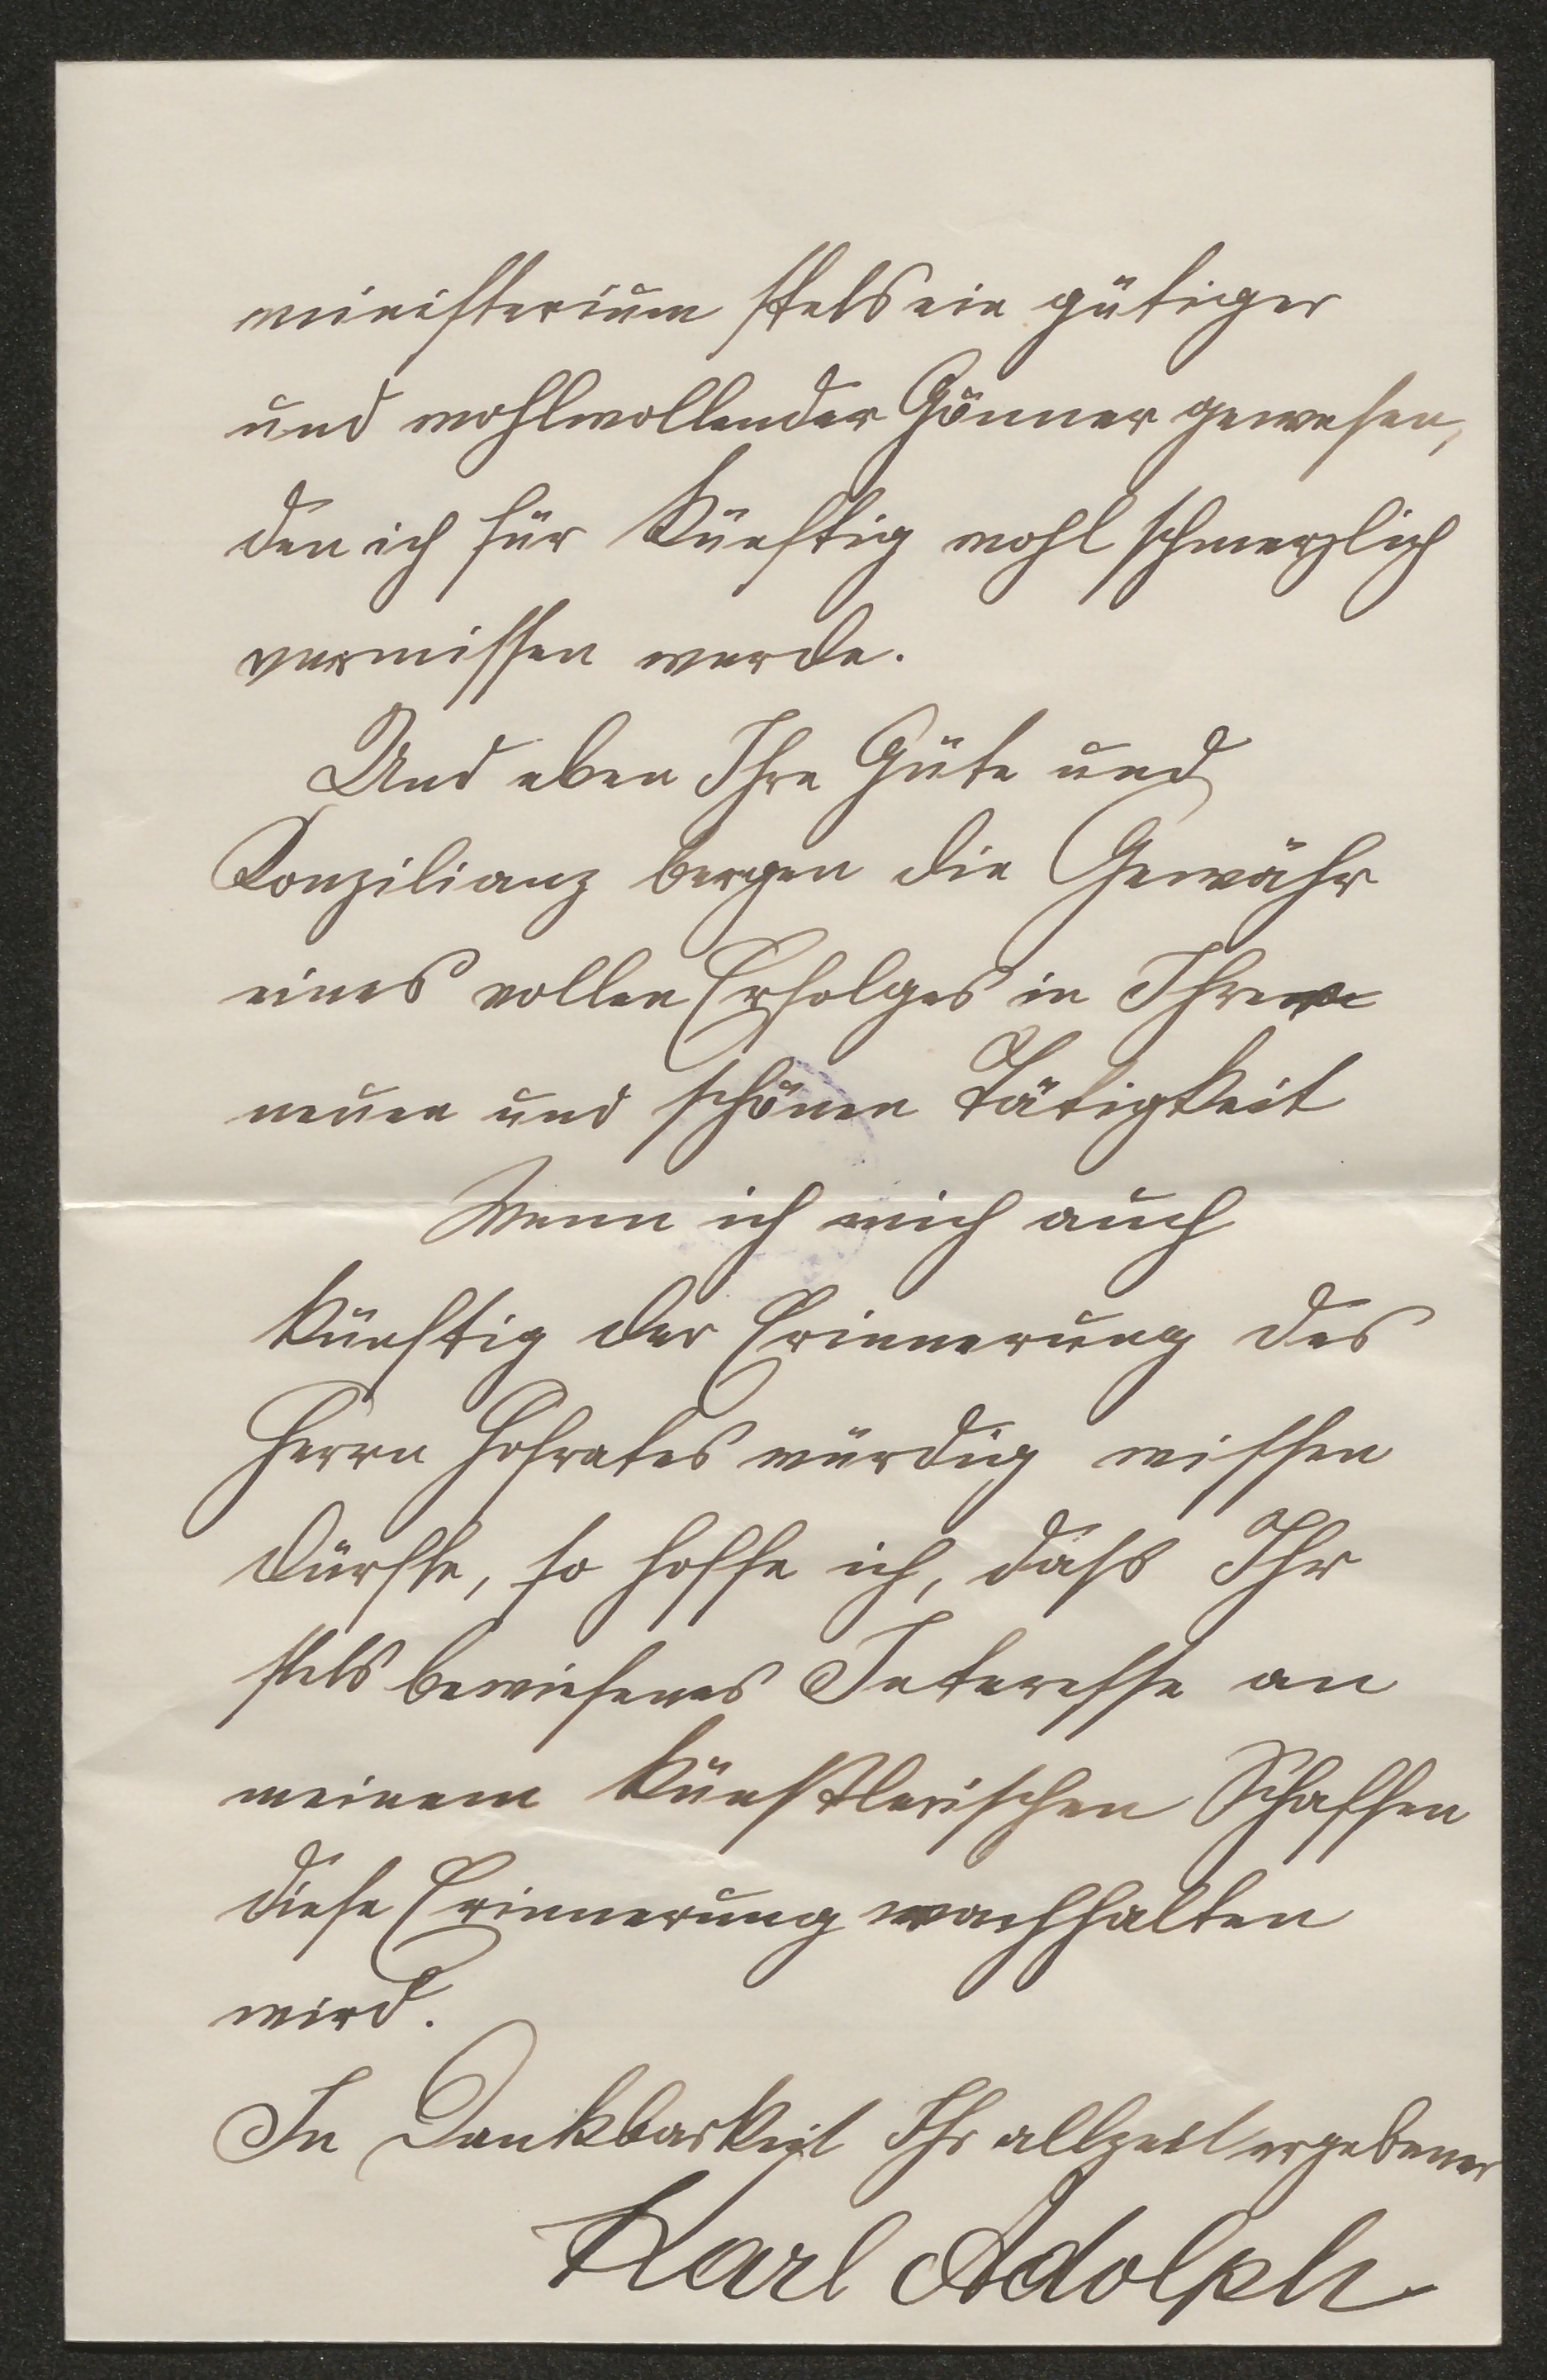 ministerium stets ein gütiger
und wohlwollender Gönner gewesen,
den ich für künftig wohl schmerzlich
vermissen werde.
Und eben Ihre Güte und
Konzilianz bergen die Gewähr
eines vollen Erfolges in Ihrer
neuen und schönen Tätigkeit
Wenn ich mich auch
künftig der Erinnerung des
Herrn Hofrates würdig wissen
dürfte, so hoffe ich, dass Ihr
stets bewiesenes Interesse an
meinem künstlerischen Schaffen
diese Erinnerung wachhalten
wird.
In Dankbarkeit Ihr allzeit ergebener
Karl Adolph